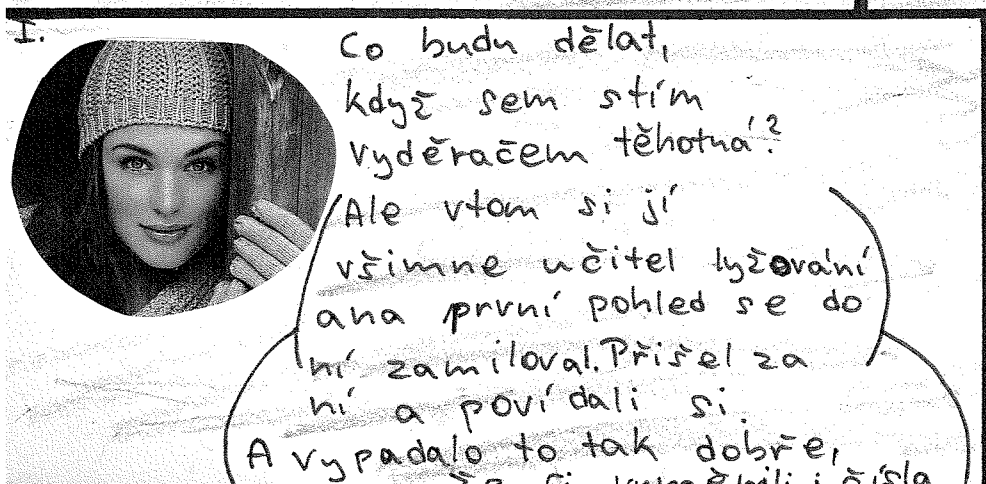 I.
Co budu dělat,
když sem stím
vyděračem těhotná?
Ale vtom si jí
všimne učitel lyžování
ana první pohled se do
ní zamiloval. Přišel za
ní a povídali si.
A vypadalo to tak dobře,
že si vyměnili i čísla